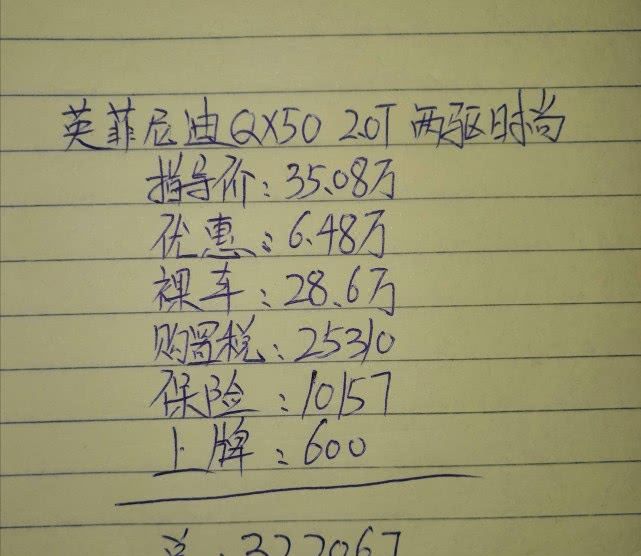 英菲尼迪QX50 2.0T 两驱时尚
指导价:35.08万
优惠:6.48万
裸车:28.6万
购置税:25310
保险:10157
上牌:600
总:322067